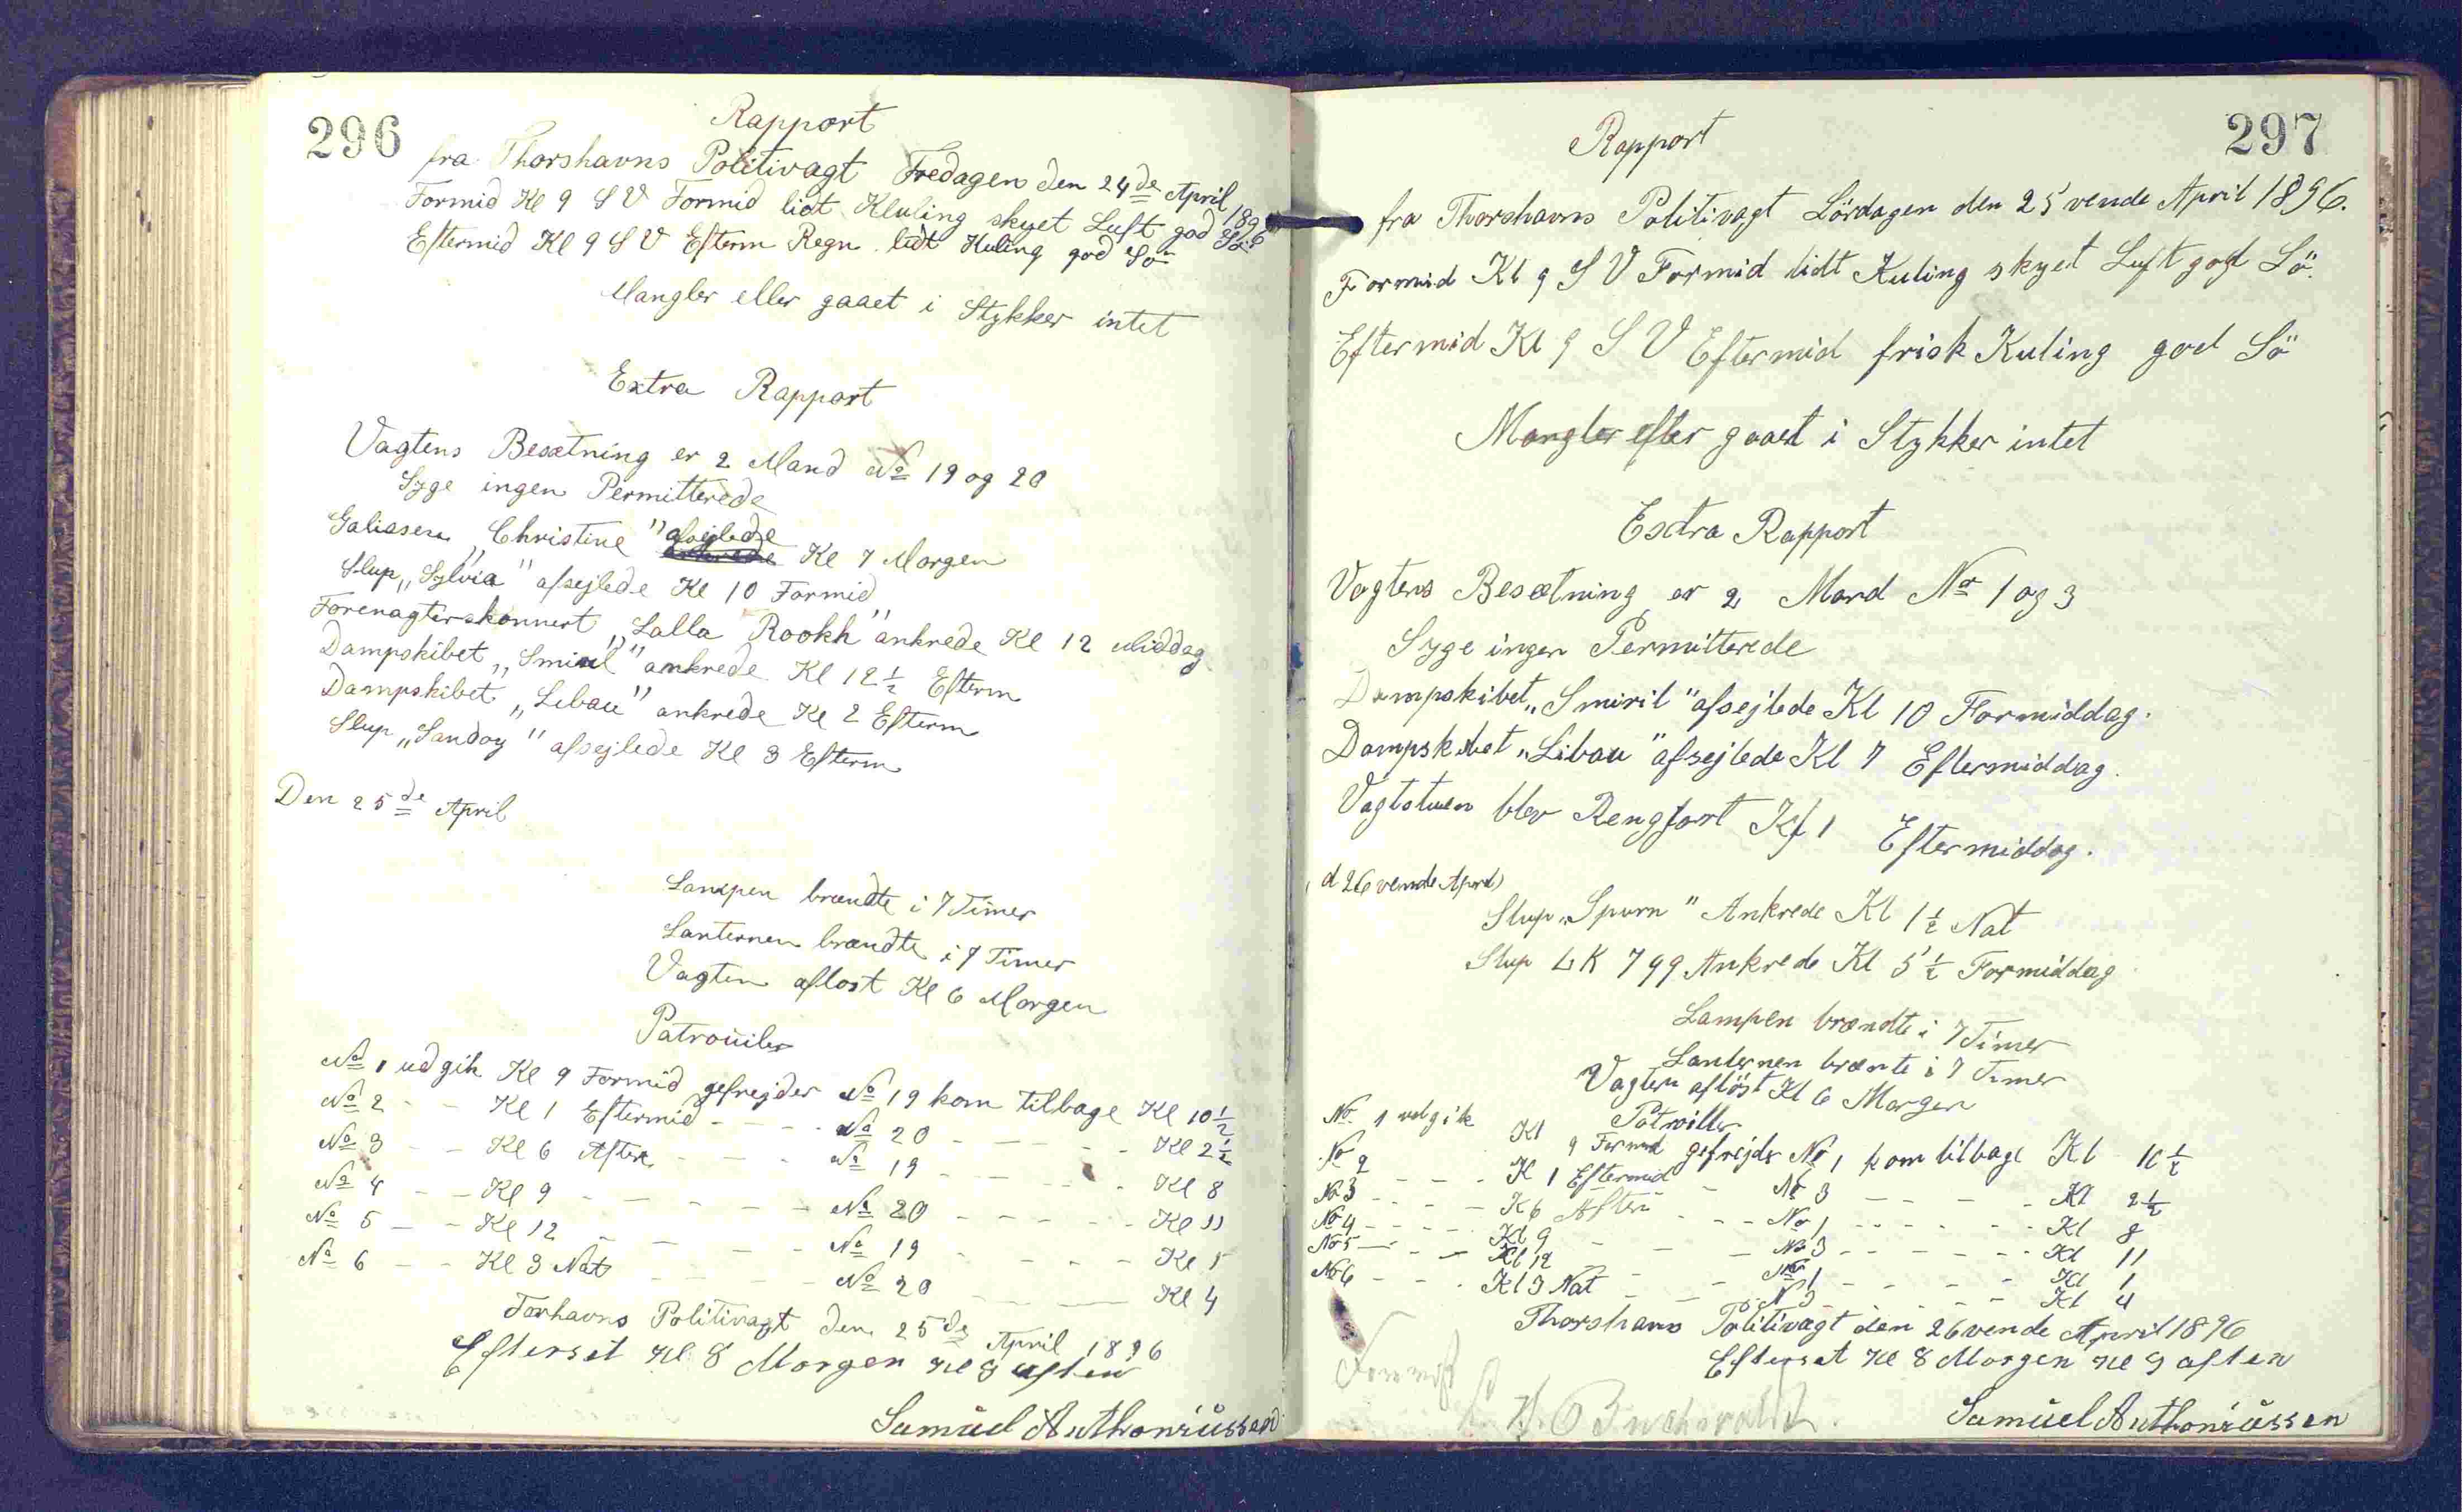 296
Rapport
fra Thorshavns Politivagt Fredagen den 24de April 1896
Formid Kl 9 S V Formid lidt Kluling skyet Luft god Sö
Eftermid Kl 9 S V Efterm Regn lidt Kuling god Sö
Mangler eller gaaet i Stykker intet
Extra Rapport
Vagtens Besætning er 2 Mand No 19 og 20
Syge ingen Permitterede
Galiasen „Christine" afsejlede Kl 7 Morgen
Slup „Sylvia" afsejlede Kl 10 Formid
Forenagterskonnert „Lalla Rookh" ankrede Kl 12 Middag
Dampskibet „Smiril" ankrede Kl 12 1/2 Efterm
Dampskibet „Libau" ankrede Kl 2 Efterm
Slup „Sandoy" afsejlede Kl 3 Efterm
Den 25de April
Lampen brændte i 7 Timer
Lanternen brændte i 7 Timer
Vagten aflost Kl 6 Morgen
Patrouiler
No 1 udgik Kl 9 Formid gefrejder No 19 kom tilbage Kl 10 1/2
No 2 - - Kl 1 Eftermid - - - - No 20 - - - - - Kl 2 1/2
No 3 - - Kl 6 Aften - - - No 19 - - - - - Kl 8
No 4 - - Kl 9 - - - - - No 20 - - - - - Kl 11
No 5 - - Kl 12 - - - - - No 19 - - - - Kl 1
No 6 - - Kl 3 Nat - - - - No 20 - - - Kl 4
Torhavns Politivagt den 25de April 1896
Efterset Kl 8 Morgen Kl 9 aften
Samuel Anthoniussen
297
Rapport
fra Thorshavns Politivagt Lördagen den 25vende April 1896.
Formid Kl 9 S V Formid lidt Kuling skyet Luft god Sö
Eftermid Kl 9 S V Eftermid frisk Kuling god Sö
Mangler efler gaaet i Stykker intet
Exstra Rapport
Vagtens Besætning er 2 Mand No 1 og 3
Syge ingen Permitterede
Dampskibet „Smiril" afsejlede Kl 10 Formiddag.
Dampskibet „Libau" afsejlede Kl 7 Eftermiddag.
Vagtstuen blev Rengjort Kl 1 Eftermiddag.
d 26vende April
Slup „Spurn" Ankrede Kl 1 1/2 Nat
Slup LK 799 Ankrede Kl 5 1/2 Formiddag
Lampen brændte i 7 Timer
Lanternen brænte i 7 Timer
Vagten aflöst Kl 6 Morgen
Patroiller
No 1 udgik Kl 9 Formid gefrejder No 1 kom tilbage Kl 10 1/2
No 2 - - - K 1 Eftermid - No 3 - - - - Kl 2 1/2
No 3 - - - - K 6 Aften - - - No 1 - - - - - Kl 8
No 4 - - - - Kl 9 - - - No 3 - - - - - Kl 11
No 5 - - - Kl 12 - - - No 1 - - - - Kl 1
No 6 - - - Kl 3 Nat - - - No 3 - - - - Kl 4
Thorshavns Politivagt den 26vende April 1896
Efterset Kl 8 Morgen Kl 9 aften
Samuel Anthoniussen